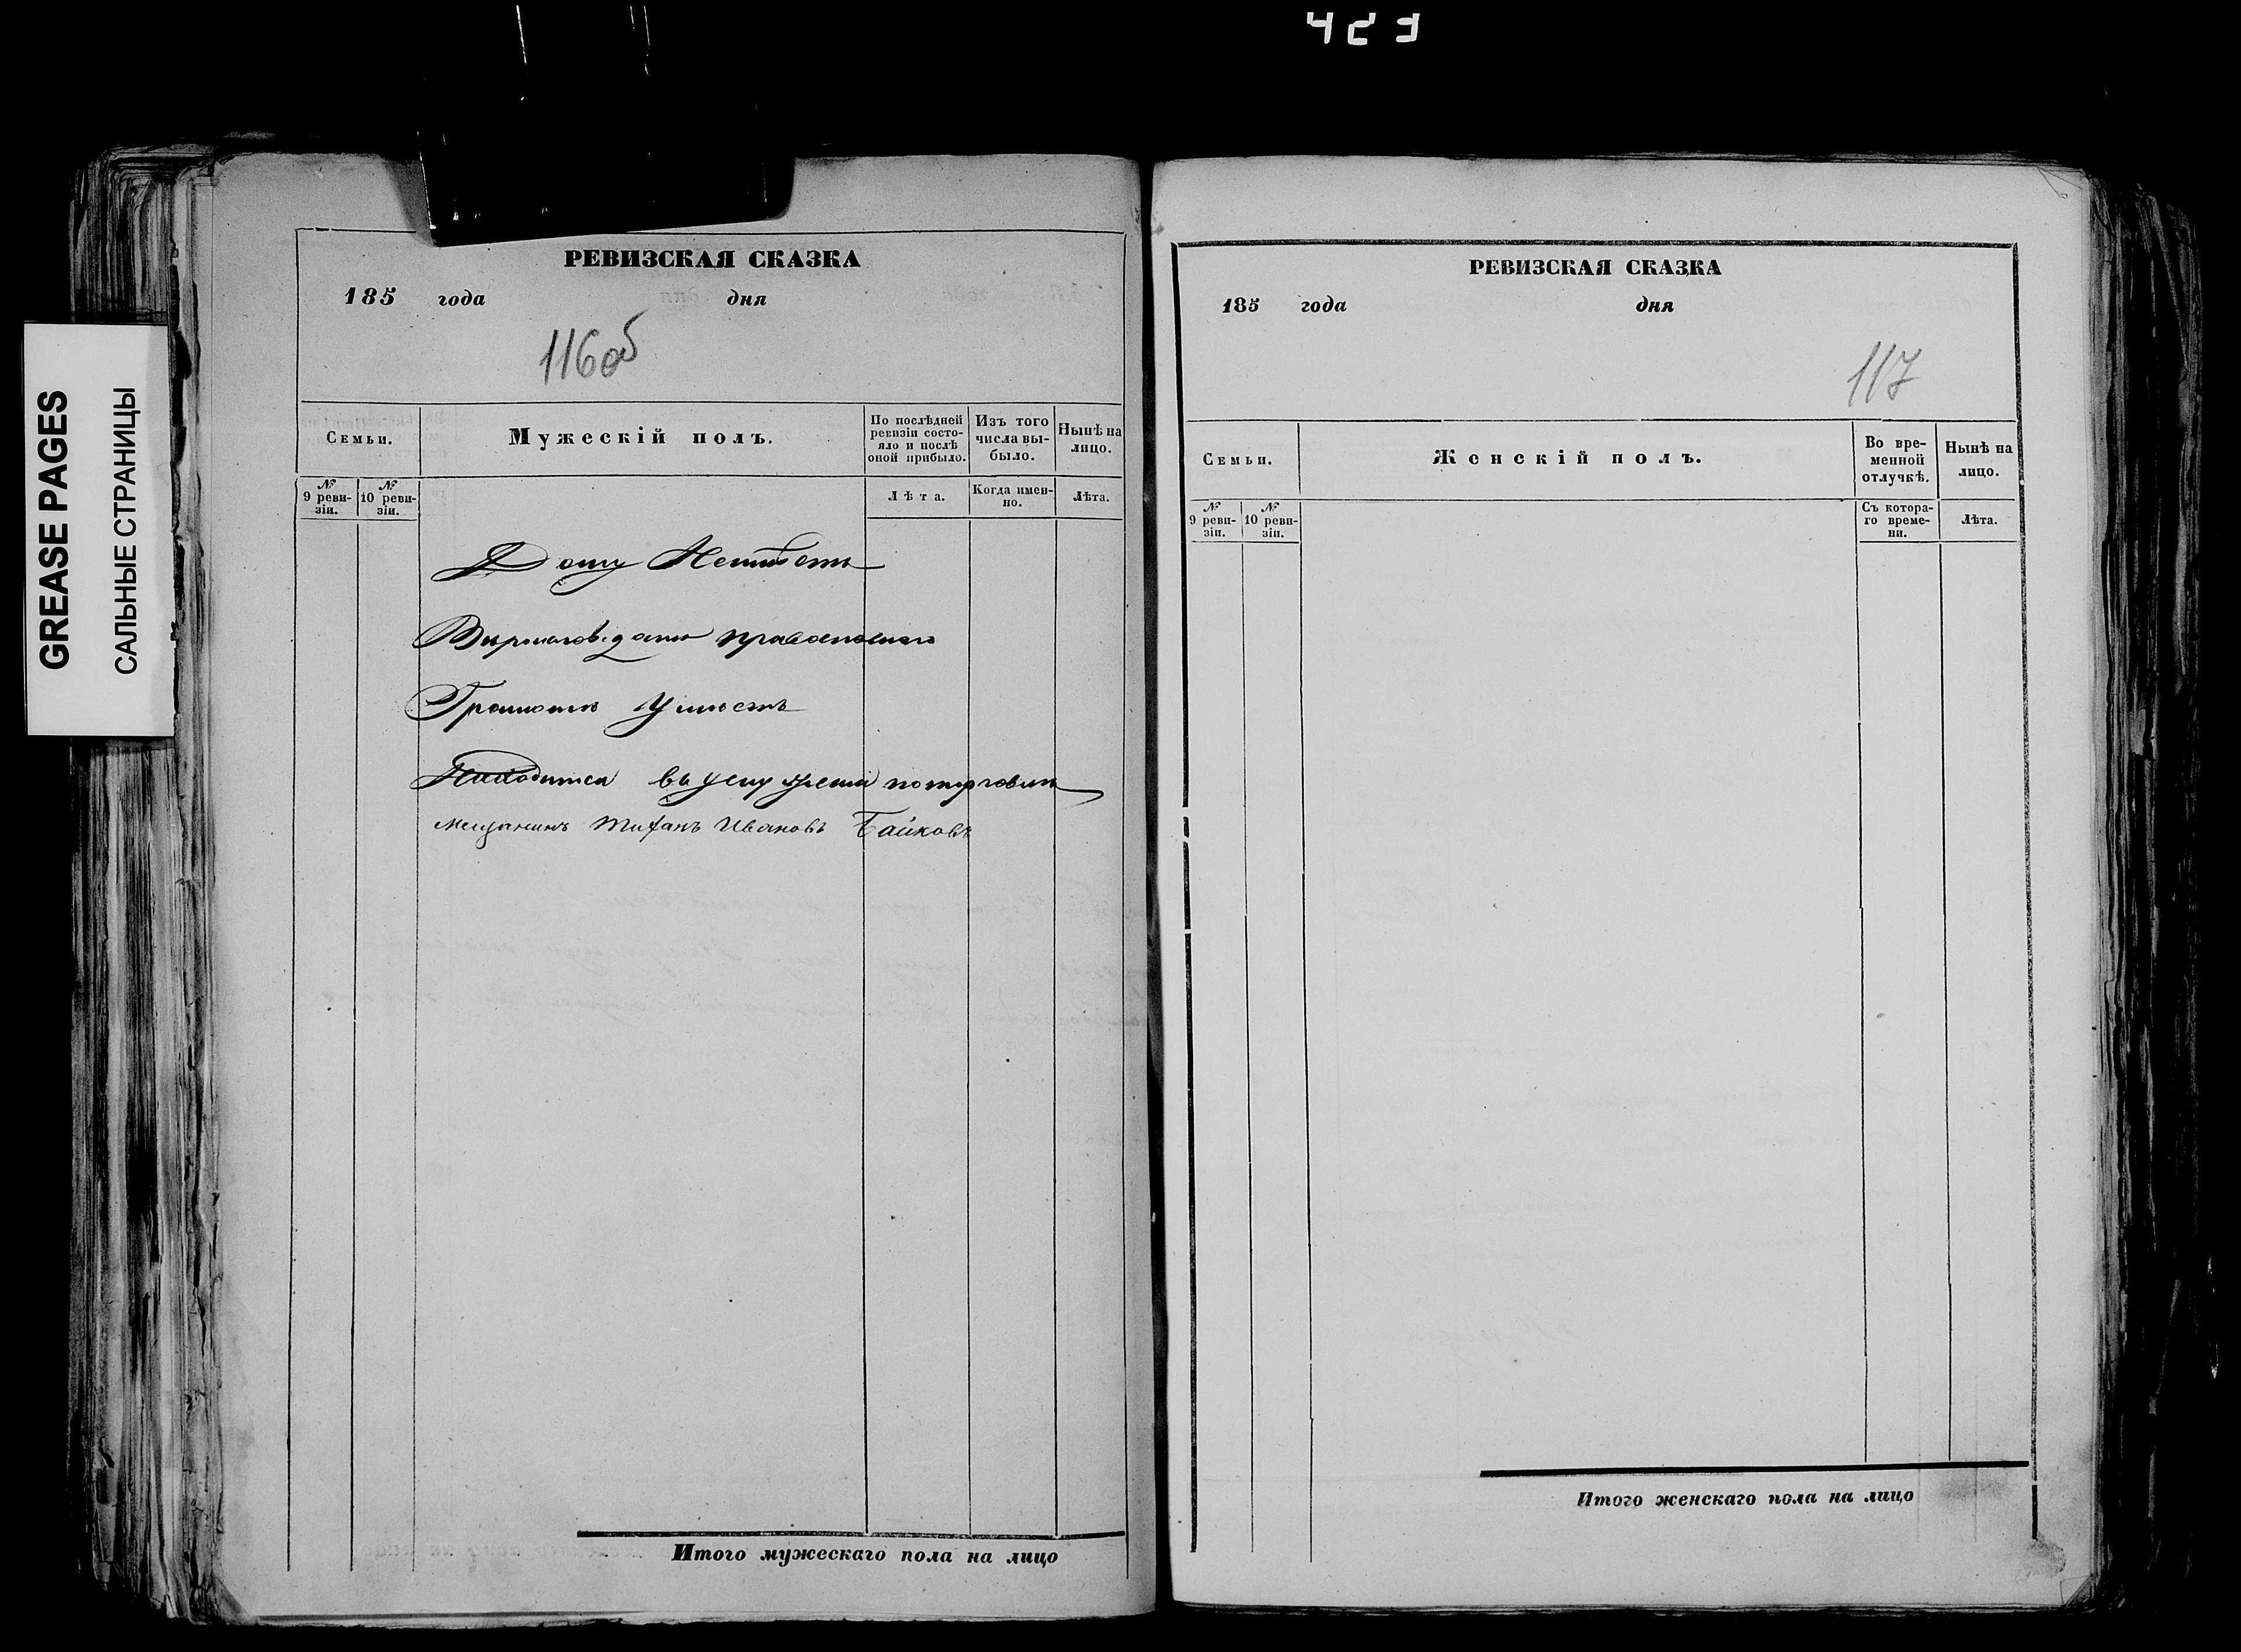 423
GREASE PAGES
САЛЬНЫЕ СТРАНИЦЫ
РЕВИЗСКАЯ СКАЗКА
185 года дня
116об
Семьи.
Мужескій полъ.
По послѣдней ревизіи состо-
яло и послѣ
оной прибыло.
Изъ того
числа вы-
было.
Нынѣ на
лицо.
№
9 реви-
зіи.
№
10 реви-
зіи.
Лѣта.
Когда имен-
но.
Лѣта.
Дому Неимѣетъ
православнаго
Грамотѣ Умѣетъ
Находится въ услуженіи поторговли
мещанинъ Ивановъ Байковъ
Итого мужескаго пола на лицо
РЕВИЗСКАЯ СКАЗКА
185 года дня
117
Семьи.
Женскій полъ.
Во вре-
менной
отлучкѣ.
Нынѣ на
лицо.
№
9 реви-
зіи.
№
10 реви-
зіи.
Съ котора-
го време-
ни.
Лѣта.
Итого женскаго пола на лицо